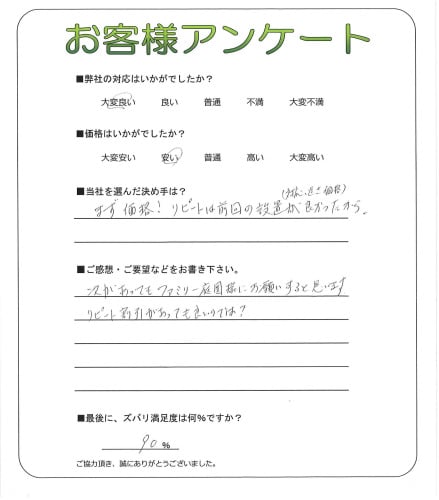 お客様アンケート
■弊社の対応はいかがでしたか？
大変良い 良い 普通 不満 大変不満
■価格はいかがでしたか？
大変安い 安い 普通 高い 大変高い
■当社を選んだ決め手は？
価格）
まず価格！リピートは前回の設置が良かったから。
■ご感想・ご要望などをお書き下さい。
次があってもファミリー庭園様にお願いすると思います
リピート割引があっても良いのでは？
■最後に、ズバリ満足度は何％ですか？
90 %
ご協力頂き、誠にありがとうございました。